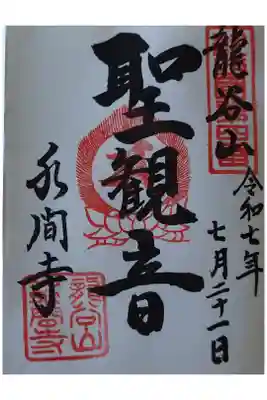 龍谷山
令和七年
七月二十一日
聖観音
水間寺